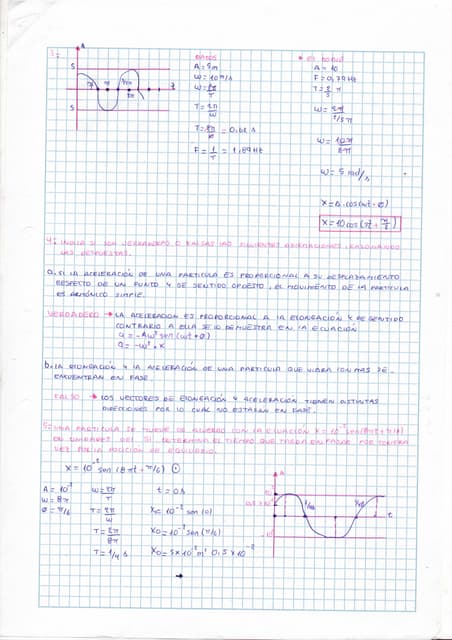 3:
A
5
5
DATOS
A = 5m
W = 10π/s
W = 2π/T
T = 2π/W
T = 2π/ = 0,62 s
F = 1/T = 1,89 Hz
A = 10
F = 0,79 Hz
π
W = 2π/
W = 10π/2π
W = 5 rad/s
X = A·cos(wt+φ)
X = 10 cos(
4: INDICA SI SON VERDADERAS O FALSAS LAS SIGUIENTES AFIRMACIONES, RAZONANDO
LAS RESPUESTAS.
a. SI LA ACELERACIÓN DE UNA PARTÍCULA ES PROPORCIONAL A SU DESPLAZAMIENTO
RESPECTO DE UN PUNTO Y DE SENTIDO OPUESTO, EL MOVIMIENTO DE LA PARTÍCULA
ES ARMÓNICO SIMPLE.
VERDADERO → LA ACELERACIÓN ES PROPORCIONAL A LA ELONGACIÓN Y DE SENTIDO
CONTRARIO A ELLA SE DEMUESTRA EN LA ECUACIÓN
a = -Aw² sen (wt+φ)
a = -w²·x
b. LA ELONGACIÓN Y LA ACELERACIÓN DE UNA PARTÍCULA QUE VIBRA CON MAS SE
ENCUENTRAN EN FASE.
FALSO → LOS VECTORES DE ELONGACIÓN Y ACELERACIÓN TIENEN DISTINTAS
DIRECCIONES POR LO CUAL NO ESTARÁN EN FASE.
5: UNA PARTÍCULA SE MUEVE DE ACUERDO CON LA ECUACIÓN X = 10⁻² sen(8πt + π/6)
EN UNIDADES DEL SI. DETERMINA EL TIEMPO QUE TARDA EN PASAR POR
VEZ POR LA POSICIÓN DE EQUILIBRIO.
X = 10⁻² sen (8πt + π/6)
A = 10⁻²
W = 8π
φ = π/6
W = 2π/T
T = 2π/W
T = 2π/8π
T = 1/4 s
t = 0 s
X₀ = 10⁻² sen (0)
X₀ = 10⁻² sen (π/6)
X₀ = 5×10⁻³ m 0,5×10⁻²
A
0,5×10⁻²
t